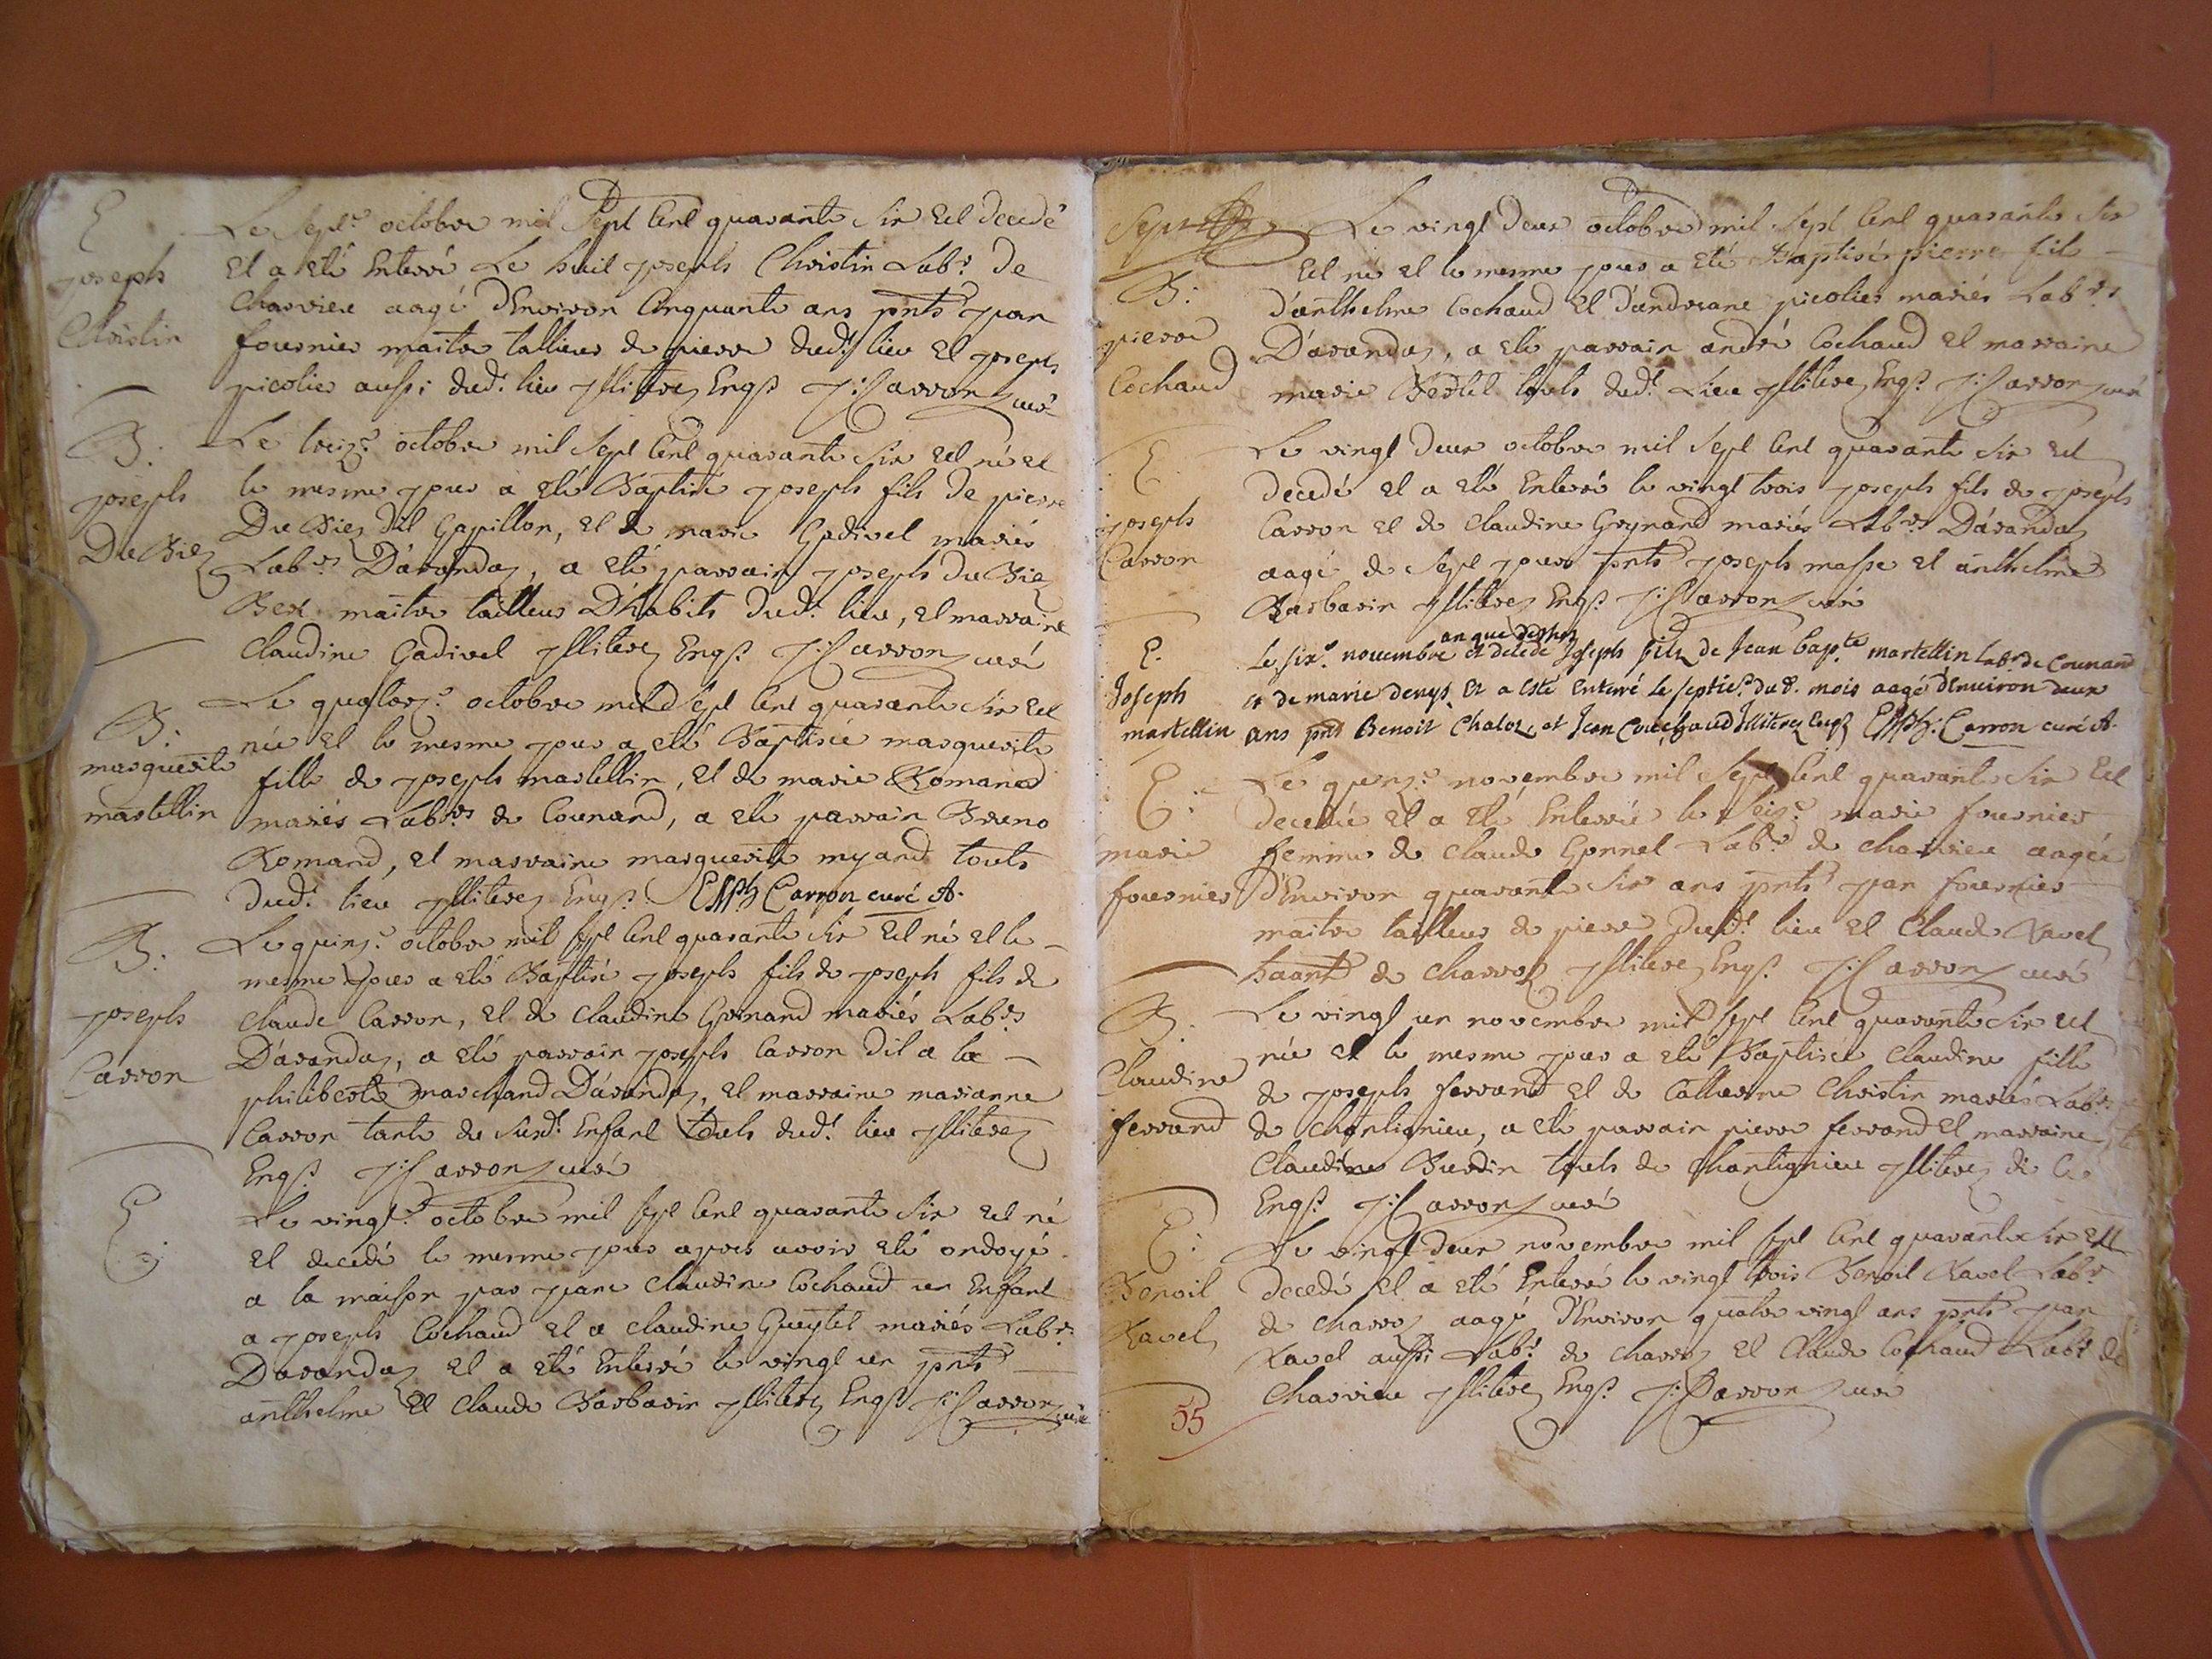 E
joseph
Christin
Le sept.e octobre mil sept cent quarante six est decedé
et a eté enterré Le huit joseph Christin Lab.r de
Charvieu aagé d'Environ Cinquante ans pnts jean
fournier maitre tallieur de pierre dud.t lieu et joseph
picolier aussi dud.t lieu jlliterez Enqs J: Carron curé
B:
joseph
Du Biez
Le treiz.e octobre mil sept cent quarante six est né et
le mesme jour a eté Baptisé joseph fils de pierre
Du Biez dit Gapillon, et de marie Gadivet mariés
Lab.rs D'arandaz, a eté parrain joseph du Biez
maitre tailleur D'habits dud.t lieu, et marraine
Claudine Gadivet jlliterez Enqs J: Carron curé
B:
marguerite
martellin
Le quatorz.e octobre mil sept cent quarante six est
née et le mesme jour a eté Baptisée marguerite
fille de joseph martellin, et de marie Romand
mariés Lab.rs de Counand, a eté parrain Bruno
Romand, et marraine marguerite myand touts
dud.t lieu jlliterez Enqs Carron curé A.
B:
joseph
Carron
Le quinz.e octobre mil sept cent quarante six est né et le
mesme jour a eté Baptisé joseph fils de joseph fils de
claude Carron, et de claudine Goynand mariés Lab.rs
D'arandaz, a eté parrain joseph Carron dit a la
philiberte marchand D'arandaz, et marraine marianne
Carron tante du surd.t Enfant touts dud.t lieu jlliterez
Enqs J: Carron curé
E:
Le vingt.e octobre mil sept cent quarante six est né
et decedé le mesme jour apres avoir eté ondoyé
a la maison par jeane claudine Cochaud un Enfant
a joseph Cochaud et a claudine Gueytet mariés Lab.rs
Darandaz et a eté enterré le vingt un pnts
anthelme et claude Barbarin jlliterez Enqs J: Carron curé
Sept
B:
pierre
Cochaud
Le vingt deux octobre mil sept cent quarante six
Est né et le mesme jour a eté Baptisé pierre fils
d'anthelme Cochaud et d'andreane picolier mariés Lab.rs
D'arandaz, a eté parrain andré Cochaud et marraine
marie Bertet touts dud.t Lieu jlliterez Enqs J: Carron curé
E
joseph
Carron
Le vingt deux octobre mil sept cent quarante six est
decedé et a eté Enterré le vingt trois joseph fils de joseph
Carron et de claudine Goynand mariés Lab.rs D'arandaz
aagé de sept jours pnts joseph masse et anthelme
Barbarin jlliterez Enqs J: Carron curé
E.
Joseph
martellin
an que dessus
Le six.e novembre est decedé Joseph fils de Jean bap.te martellin Lab.r de Counand
et de marie denys Et a esté enterré le septie.e dud. mois aagé d'Environ deux
ans pnts Benoit Chaloz, et Jean Couchaud Jlliterez Enqs Carron curé A.
E:
marie
fournier
Le quinz.e novembre mil sept cent quarante six Est
decedée et a eté Enterrée le seiz.e marie fournier
femme de claude Gonnet Lab.r de charvieu aagée
d'Environ quarante six ans pnts jean fournier
maitre tailleur de pierre Dud.t lieu et Claude Ravet
haant de charvoz jlliterez Enqs J: Carron curé
B.
Claudine
ferrand
Le vingt un novembre mil sept cent quarante six est
née et le mesme jour a eté Baptisée Claudine fille
de joseph ferrand et de Catherine Christin mariés Lab.rs
de Chantignieu, a eté parrain pierre ferrand et marraine
Claudine Burdin touts de Chantignieu jlliterez de ce
Enqs J: Carron curé
E:
Benoit
Ravet
Le vingt deux novembre mil sept cent quarante six est
decedé et a eté Enterré le vingt trois Benoit Ravet Lab.r
de charvoz aagé d'Environ quatre vingt ans pnts jean
Ravet aussi Lab.r de charvoz et Claude Cochaud Lab.r de
Charvieu jlliterez Enqs J: Carron curé
55